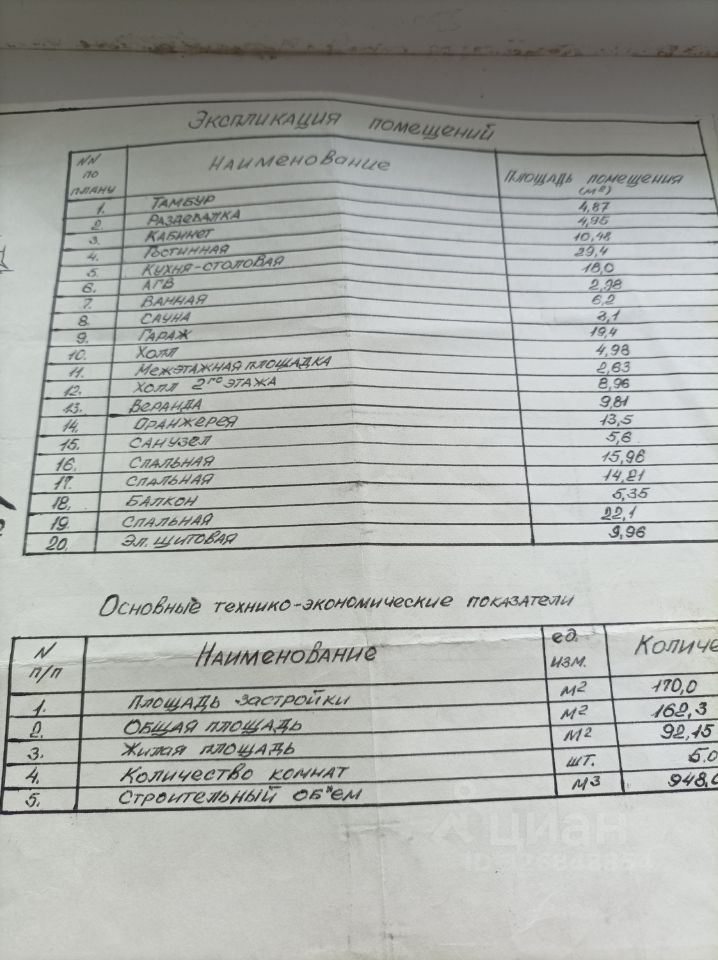 Экспликация помещений
NN по плану Наименование Площадь помещения (м²)
1. Тамбур 4,87
2. Раздевалка 4,95
3. Кабинет 10,48
4. Гостинная 29,4
5. Кухня-столовая 18,0
6. АГВ 2,98
7. Ванная 6,2
8. Сауна 3,1
9. Гараж 19,4
10. Холл 4,98
11. Межэтажная площадка 2,63
12. Холл 2го этажа 8,96
13. Веранда 9,81
14. Оранжерея 13,5
15. Санузел 5,6
16. Спальная 15,98
17. Спальная 14,21
18. Балкон 5,35
19 Спальная 22,1
20. Эл. щитовая 9,96
Основные технико-экономические показатели
N п/п Наименование ед. изм. Количе
1. Площадь застройки м² 170,0
2. Общая площадь м² 162,3
3. Жилая площадь м² 92,15
4. Количество комнат шт. 5.0
5. Строительный об"ем м3 948,0
циан